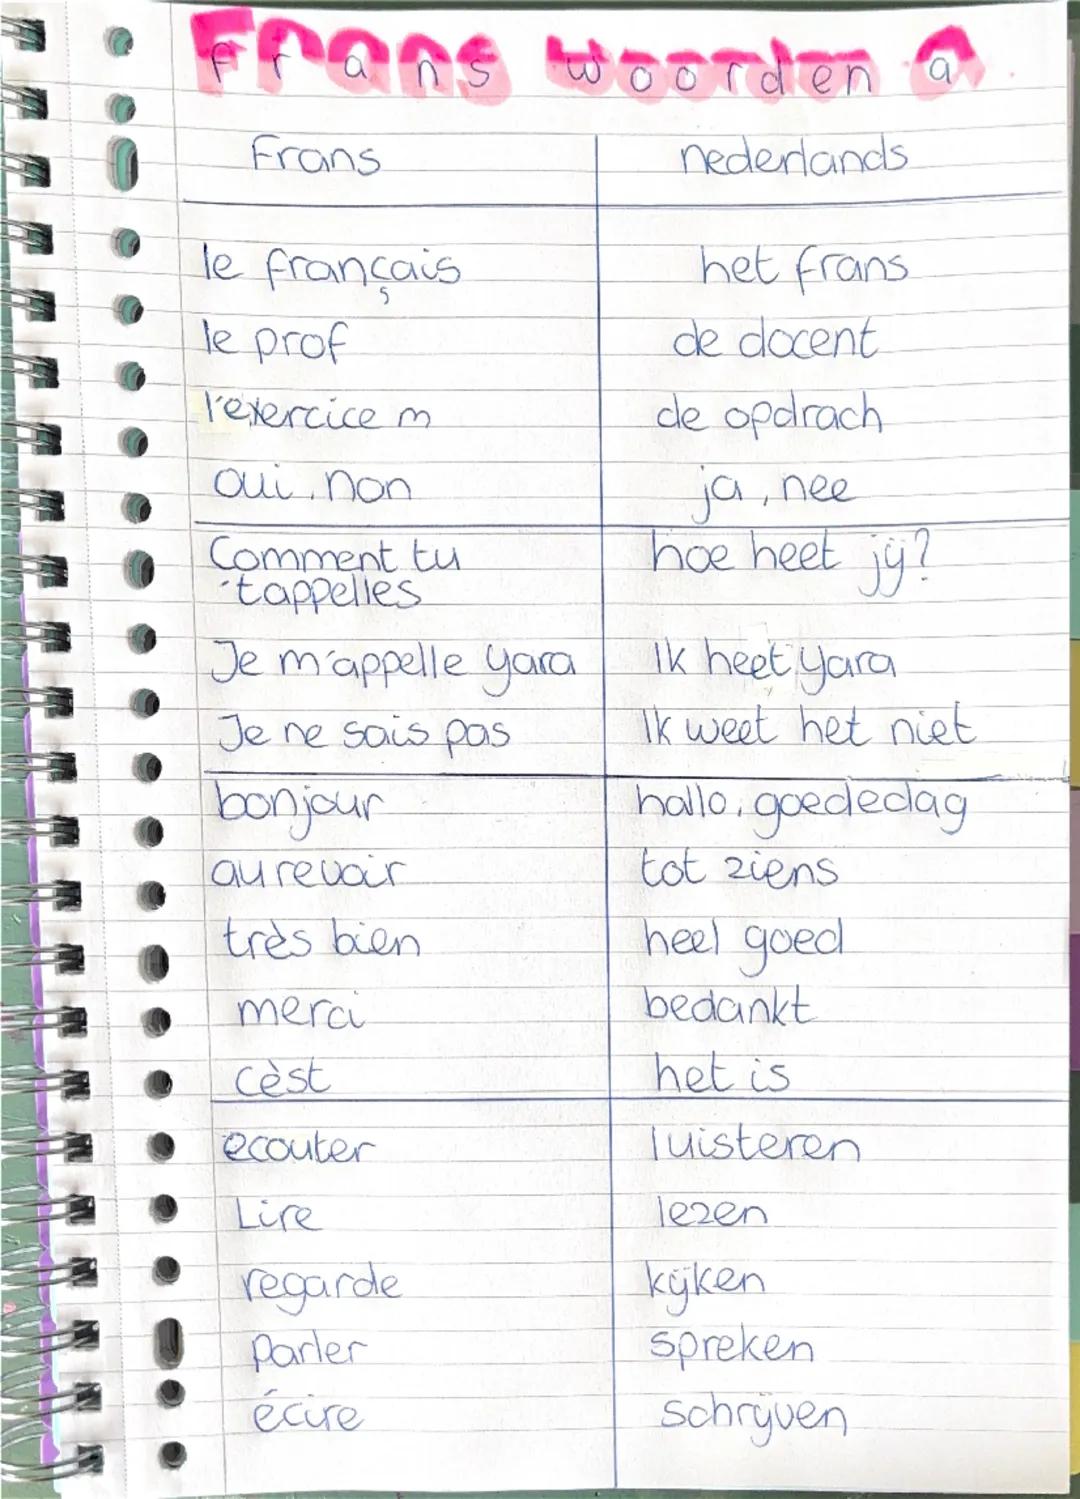 Frans woorden a
Frans nederlands
le français het frans
le prof de docent
l'exercice m de opdrach
oui, non ja, nee
Comment tu hoe heet jij?
'tappelles
Je m'appelle yara Ik heet yara
Je ne sais pas Ik weet het niet
bonjour hallo, goedendag
au revoir tot ziens
très bien heel goed
merci bedankt
cèst het is
ecouter luisteren
Lire lezen
regarde kijken
parler spreken
écire schrijven